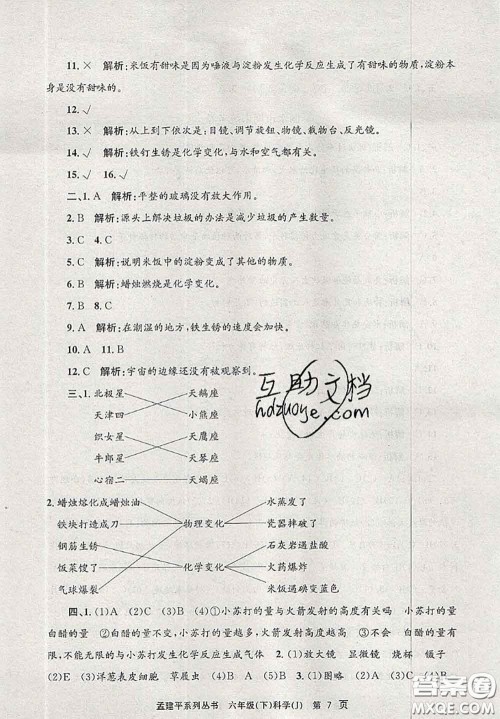 11. × 解析:米饭有甜味是因为唾液与淀粉发生化学反应生成了有甜味的物质,淀粉本
身是没有甜味的。
12. √
13. × 解析:从上到下依次是:目镜、调节旋钮、物镜、载物台、反光镜。
14. √ 解析:铁钉生锈是化学变化,与水和空气都有关。
15. √ 16. √
二、1. A 解析:平整的玻璃没有放大作用。
2. B 解析:源头上解决垃圾的办法是减少垃圾的产生数量。
3. C 4. C
5. C 解析:说明米饭中的淀粉变成了其他的物质。
6. B 解析:蜡烛燃烧是化学变化。
7. B 8. C
9. A 解析:在潮湿的地方,铁生锈的速度会加快。
10. A 11. B
12. C 解析:宇宙的边缘还没有被观察到。
三、1. 北极星 天鹅座
天津四 小熊座
织女星 天鹰座
牛郎星 天琴座
心宿二 天蝎座
互助文档
hdzuoye.com
2. 蜡烛熔化成蜡烛油 水蒸发了
铁块打造成刀 物理变化 瓷器摔破了
钢筋生锈 石灰岩遇盐酸
饭菜馊了 化学变化 火药爆炸
气球爆裂 米饭遇碘变蓝色
四、1. (1)A (2)C (3)B (4)①小苏打的量与火箭发射的高度有关吗 小苏打的量
白醋的量 ②白醋的量不变,小苏打的量越多,火箭发射的高度越高 ③白醋的量有限,
不能无限的与小苏打发生化学反应生成气体 2. (1)放大镜 显微镜 烧杯 镊子
(2)洋葱表皮细胞 食盐 (3)B (4)B 3. (1)图略 (2)C (3)C (4)B
孟建平系列丛书 六年级(下)科学(J) 第 7 页